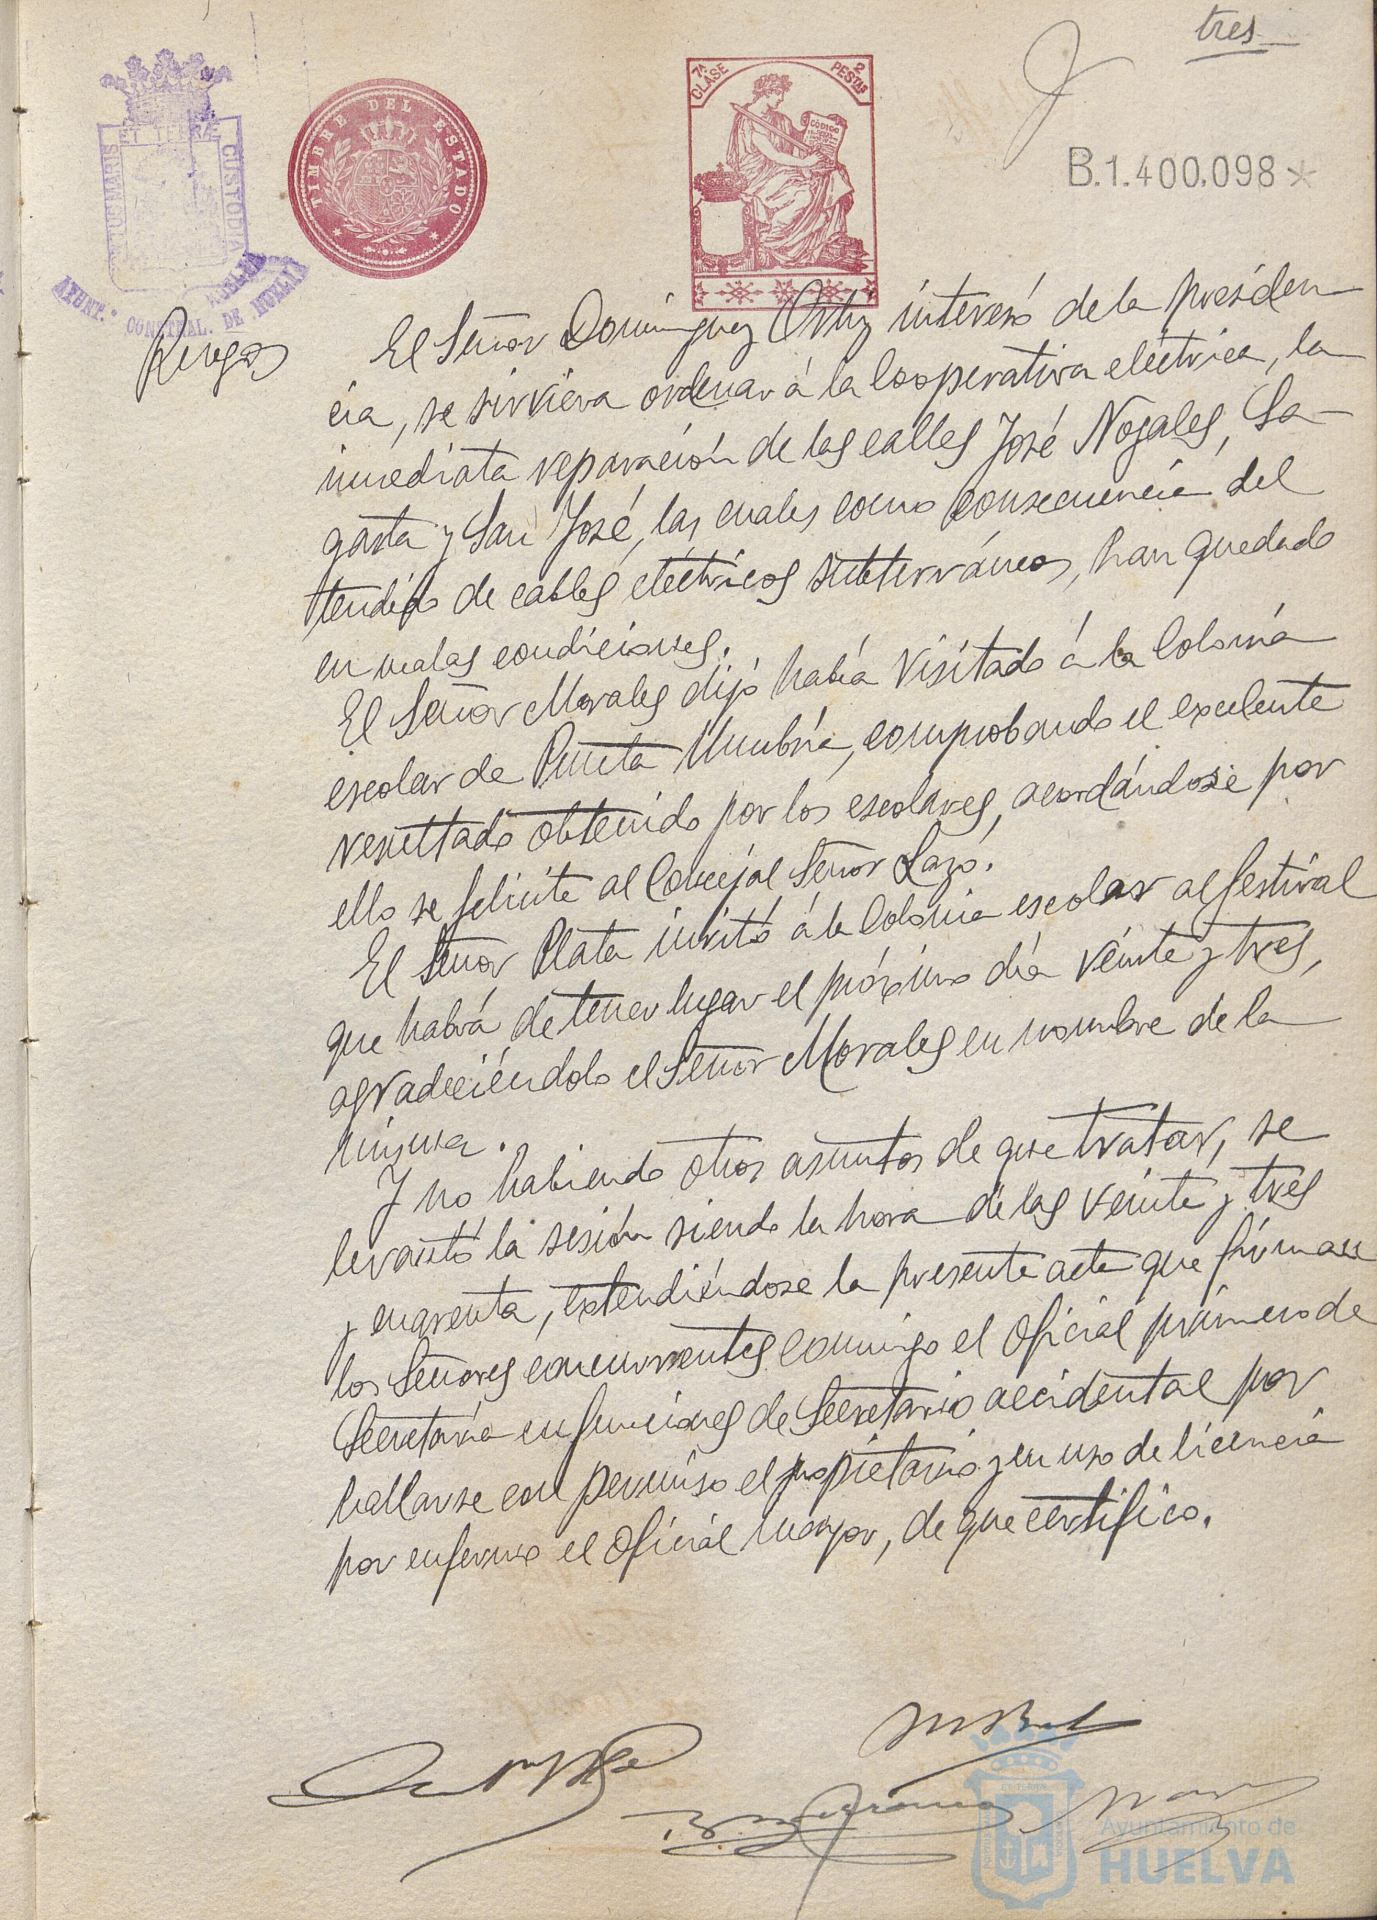 tres
7ª CLASE
2 PESTAS
TIMBRE DEL ESTADO
CODIGO
PORTUS MARIS ET TERRÆ CUSTODIA
HUELVA
AYUNT.º CONSTNAL. DE HUELVA
B.1.400.098*
Ruegos
El Señor Dominguez Ortiz interesó de la presiden
cia, se sirviera ordenar á la Cooperativa electrica, la
inmediata reparación de las calles José Nogales, Sa-
gasta y San José, las cuales como consecuencia del
tendido de cables eléctricos subterráneos, han quedado
en malas condiciones.
El Señor Morales dijó había visitado á la Colonia
escolar de Punta Umbría, comprobando el excelente
resultado obtenido por los escolares, acordándose por
ello se felicite al Concejal Señor Lazo.
El Señor Plata invitó á la Colonia escolar al festival
que habrá de tener lugar el próximo día veinte y tres,
agradeciéndolo el Señor Morales en nombre de la
misma.
Y no habiendo otros asuntos de que tratar, se
levantó la sesión siendo la hora de las veinte y tres
y cuarenta, extendiéndose la presente acta que firman
los Señores concurrentes conmigo el Oficial primero de
Secretaría en funciones de Secretario accidental por
hallarse con permiso el propietario y en uso de licencia
por enfermo el Oficial mayor, de que certifico.
Ayuntamiento de
HUELVA